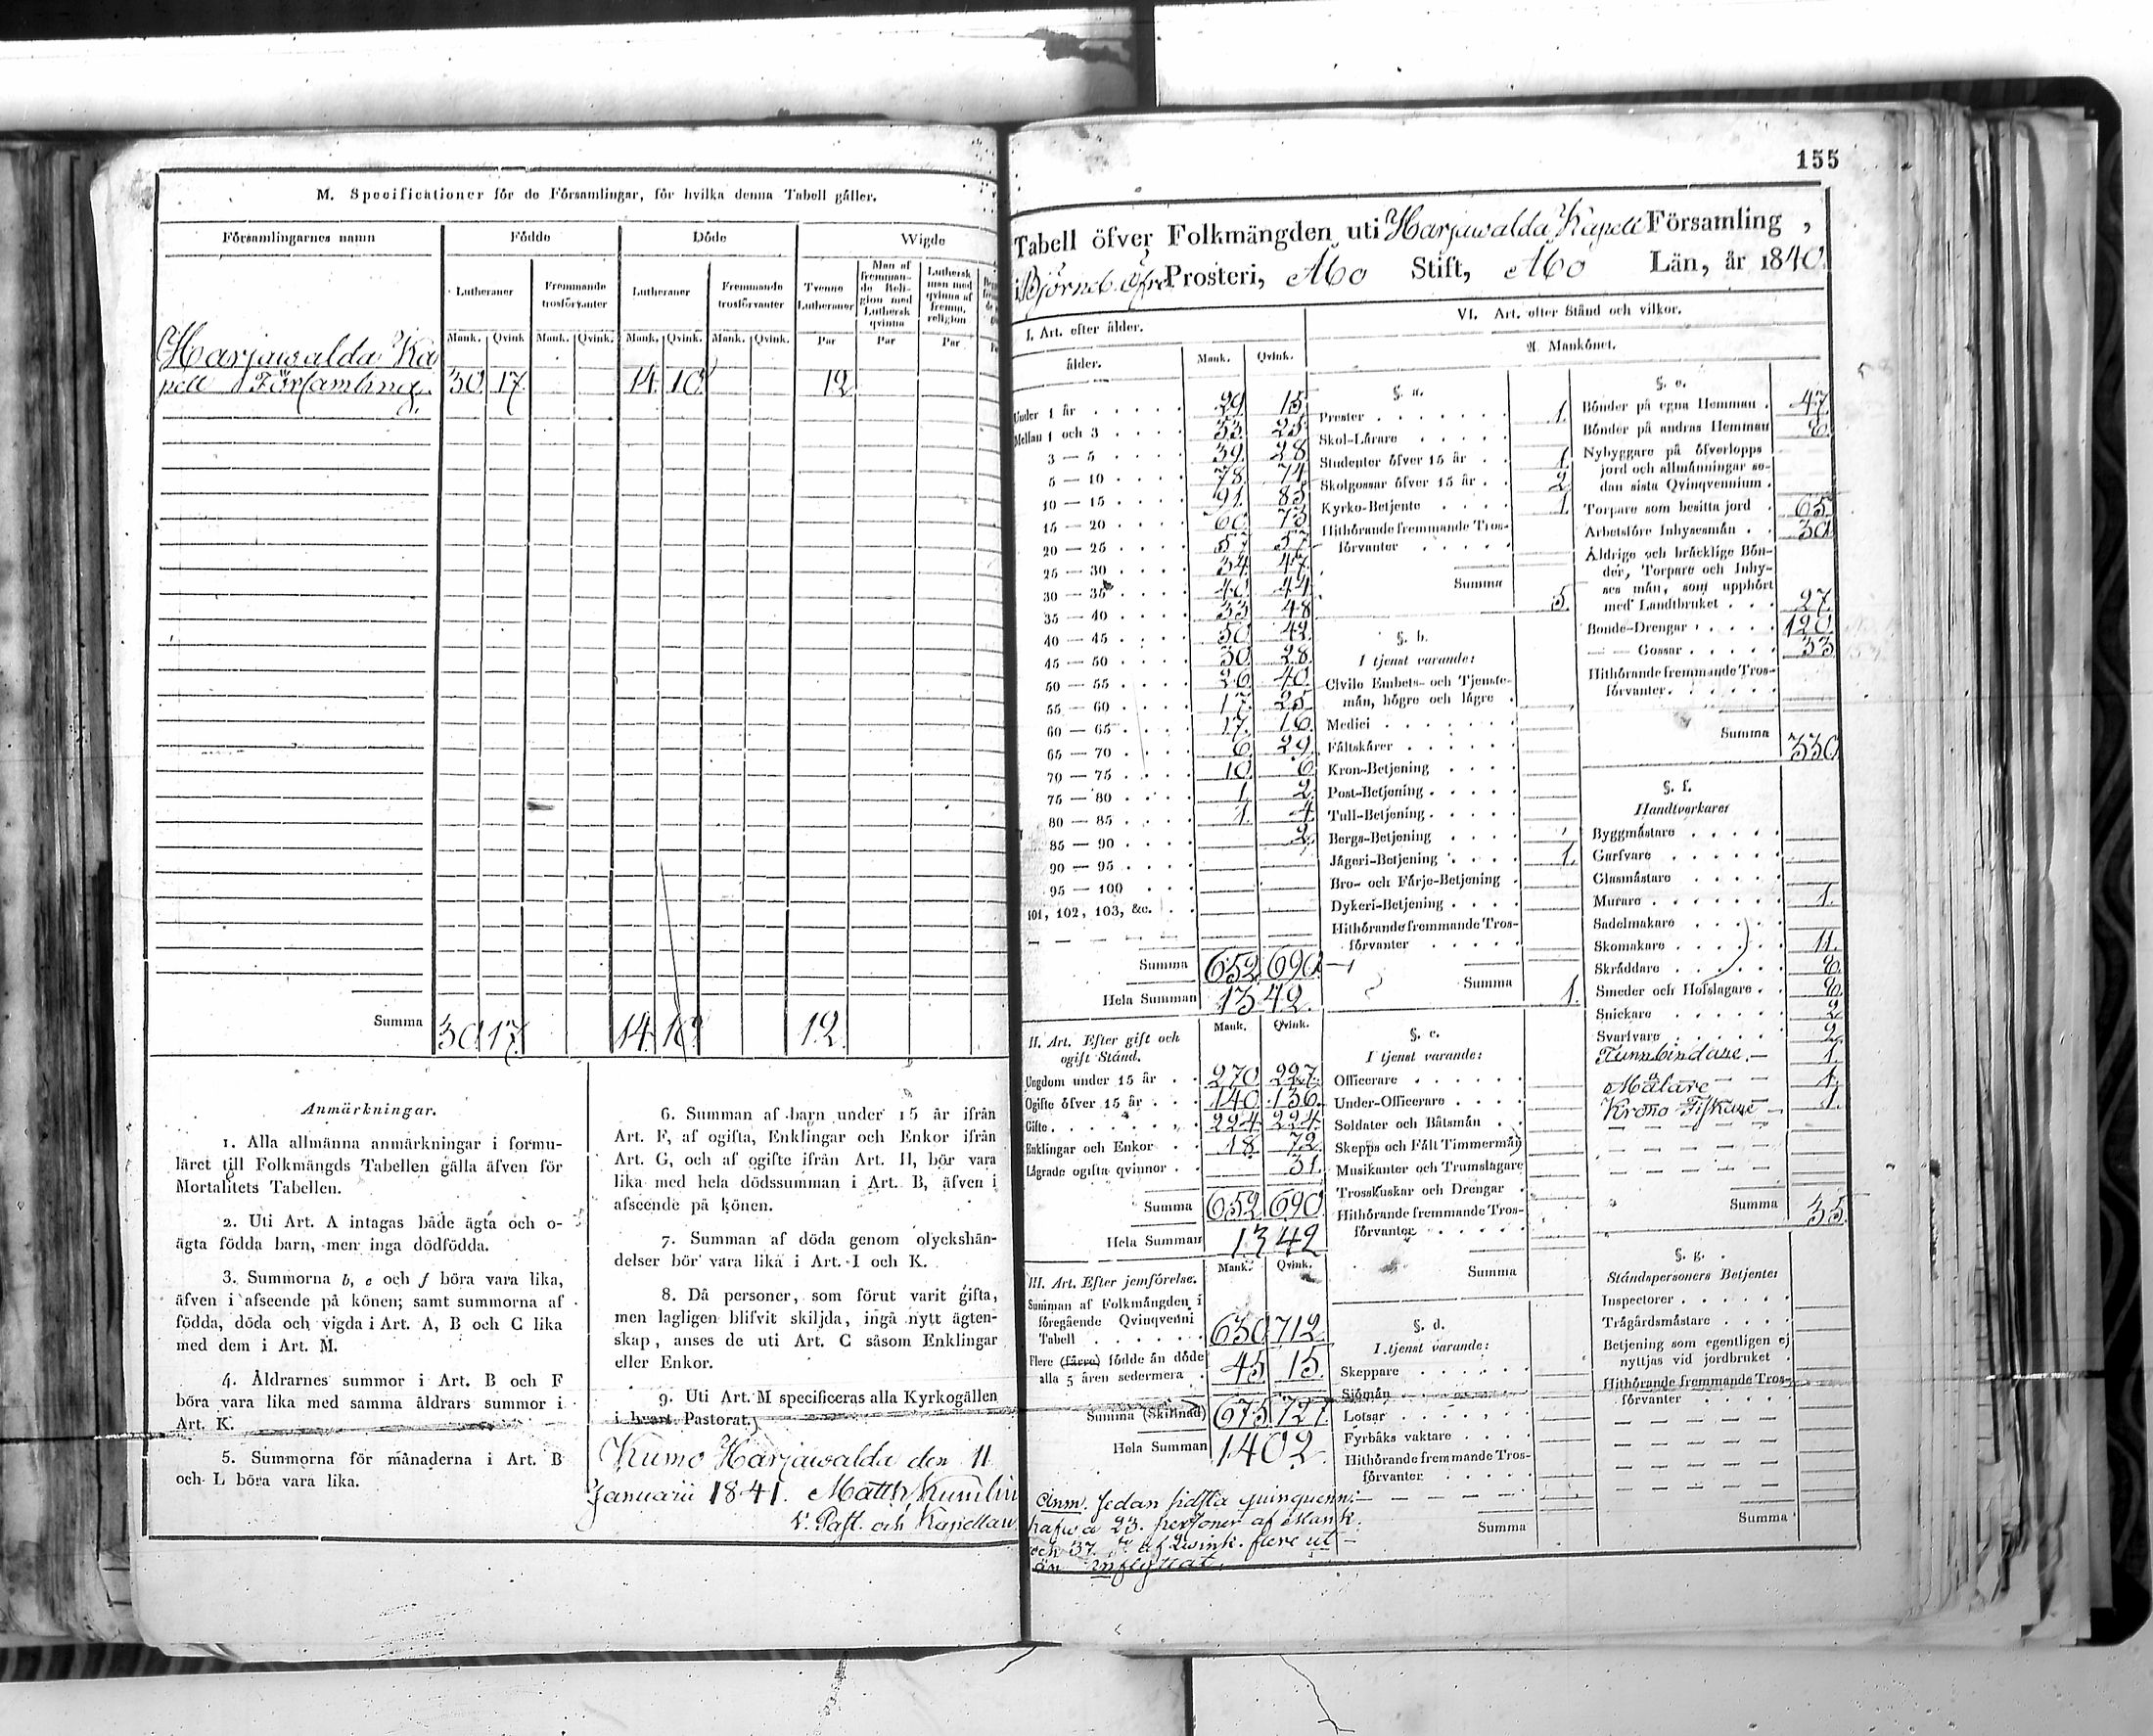 M. Specificationer för de Församlingar, för hvilka denna Tabell gäller.
Församlingarnes namn Födde Döde Wigde
Lutheraner Fremmande trosförvanter Lutheraner Fremmande trosförvanter Tvenne Lutheraner Man af fremmande Religion med Luthersk qvinna Luthersk man med qvinna af fremm. religion
Mank. Qvink Mank. Qvink. Mank. Qvink. Mank. Qvink. Par Par Par
Harjawalda Ka
pell Församling. 30. 17. 14. 10. 12
Summa 30. 17. 14. 10. 12.
Anmärkningar.
1. Alla allmänna anmärkningar i formu-
läret till Folkmängds Tabellen gälla äfven för
Mortalitets Tabellen.
2. Uti Art. A intagas både ägta och o-
ägta födda barn, men inga dödfödda.
3. Summorna b, e och f böra vara lika,
äfven i afseende på könen; samt summorna af
födda, döda och vigda i Art. A, B och C lika
med dem i Art. M.
4. Åldrarnes summor i Art. B och F
böra vara lika med samma åldrars summor i
Art. K.
5. Summorna för månaderna i Art. B
och L böra vara lika.
6. Summan af barn under 15 år ifrån
Art. F, af ogifta, Enklingar och Enkor ifrån
Art. G, och af ogifte ifrån Art. H, bör vara
lika med hela dödssumman i Art. B, äfven i
afseende på könen.
7. Summan af döda genom olyckshän-
delser bör vara lika i Art. I och K.
8. Då personer, som förut varit gifta,
men lagligen blifvit skiljda, ingå nytt ägten-
skap, anses de uti Art. C såsom Enklingar
eller Enkor.
9. Uti Art. M specificeras alla Kyrkogällen
i hvart Pastorat.
Kumo Harjawalda den 11
Januarii 1841. Matth. Kumlin
V. Past. och Kapellan.
155
Tabell öfver Folkmängden uti Harjawalda Kapell Församling,
i Björneb. öfre Prosteri, Åbo Stift, Åbo Län, år 1840.
I. Art. efter ålder.
ålder. Mank. Qvink.
Under 1 år 29. 15.
Mellan 1 och 3 33. 25.
3 — 5 39. 28
5 — 10 78. 74.
10 — 15 91. 85
15 — 20 60. 73.
20 — 25 57 57
25 — 30 34. 47.
30 — 35 40. 44.
35 — 40 33 48
40 — 45 50 42.
45 — 50 30 28.
50 — 55 26 40.
55 — 60 17. 25.
60 — 65 17. 16.
65 — 70 6. 29.
70 — 75 10. 6.
75 — 80 1. 2.
80 — 85 1. 4.
85 — 90 2.
90 — 95
95 — 100
101, 102, 103, &c.
Summa 652. 690.
Hela Summan 1342.
II. Art. Efter gift och
ogift Stånd. Mank. Qvink.
Ungdom under 15 år 270 227.
Ogifte öfver 15 år 140. 136.
Gifte 224. 224.
Enklingar och Enkor 18. 72.
Lägrade ogifta qvinnor 31.
Summa 652. 690
Hela Summan 1342
III. Art. Efter jemförelse. Mank. Qvink.
Summan af Folkmängden i
föregående Qvinqvenni
Tabell 630 712
Flere (färre) födde än döde
alla 5 åren sedermera 45 15.
Summa (Skillnad) 675 727
Hela Summan 1402.
Anm. Sedan sidsta quinquenn:
hafwa 23. personer af Mank.
och 37. af Qwink. flere ut
än inflyttat.
VI. Art. efter Stånd och vilkor.
A. Mankönet.
§. a.
Prester 1.
Skol-Lärare
Studenter öfver 15 år 1.
Skolgossar öfver 15 år 2.
Kyrko-Betjente 1.
Hithörande fremmande Tros-
förvanter
Summa 5.
§. b.
I tjenst varande:
Civile Embets- och Tjenste-
män, högre och lägre
Medici
Fältskärer
Kron-Betjening
Post-Betjening
Tull-Betjening
Bergs-Betjening
Jägeri-Betjening 1.
Bro- och Färje-Betjening
Dykeri-Betjening
Hithörande fremmande Tros-
förvanter
Summa 1.
§. c.
I tjenst varande:
Officerare
Under-Officerare
Soldater och Båtsmän
Skepps och Fält Timmermän
Musikanter och Trumslagare
Trosskuskar och Drengar
Hithörande fremmande Tros-
förvanter
Summa
§. d.
I tjenst varande:
Skeppare
Sjömän
Lotsar
Fyrbåks vaktare
Hithörande fremmande Tros-
förvanter
Summa
§. e.
Bönder på egna Hemman 47.
Bönder på andras Hemman 8.
Nybyggare på öfverlopps
jord och allmänningar se-
dan sista Qvinqvennium
Torpare som besitta jord 65
Arbetsföre Inhysesmän 30
Åldrige och bräcklige Bön-
der, Torpare och Inhy-
ses män, som upphört
med Landtbruket 27.
Bonde-Drengar 120
— Gossar 33
Hithörande fremmande Tros-
förvanter
Summa 330
§. f.
Handtverkare:
Byggmästare
Garfvare
Glasmästare
Murare 1.
Sadelmakare
Skomakare 11.
Skräddare 8.
Smeder och Hofslagare 8.
Snickare 2
Svarfvare 2.
Tunnbindare 1.
Målare 1.
Krono Fiskare 1.
Summa 35.
§. g.
Ståndspersoners Betjente:
Inspectorer
Trägårdsmästare
Betjening som egentligen ej
nyttjas vid jordbruket
Hithörande fremmande Tros-
förvanter
Summa